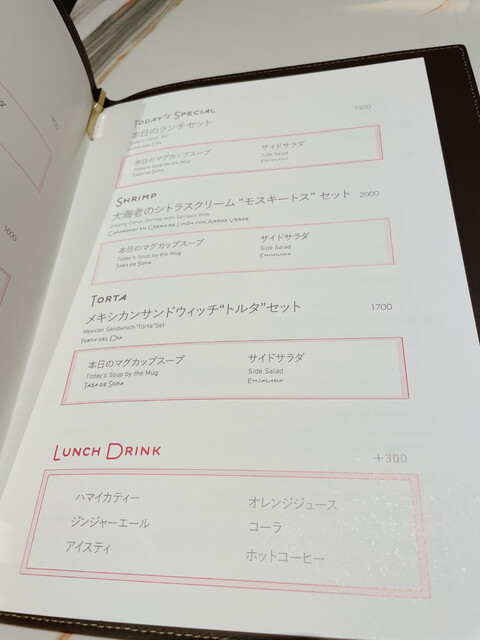 TODAY'S SPECIAL
1900
本日のランチセット
Today's Lunch Set
本日のマグカップスープ
サイドサラダ
Today's Soup by the Mug
Side Salad
TAZA DE SOPA
ENSALADA
SHRIMP
大海老のシトラスクリーム “モスキートス” セット
2000
Creamy Citrus Shrimp with Spinach Rice
CAMARONES EN CREMA DE LIMÓN CON ARROZ VERDE
本日のマグカップスープ
サイドサラダ
Today's Soup by the Mug
Side Salad
TAZA DE SOPA
ENSALADA
TORTA
メキシカンサンドウィッチ“トルタ”セット
1700
Mexican Sandwhich"Torta"Set
TORTA DEL DIA
本日のマグカップスープ
サイドサラダ
Today's Soup by the Mug
Side Salad
TAZA DE SOPA
ENSALADA
LUNCH DRINK
+300
ハマイカティー
オレンジジュース
ジンジャーエール
コーラ
アイスティ
ホットコーヒー
1600